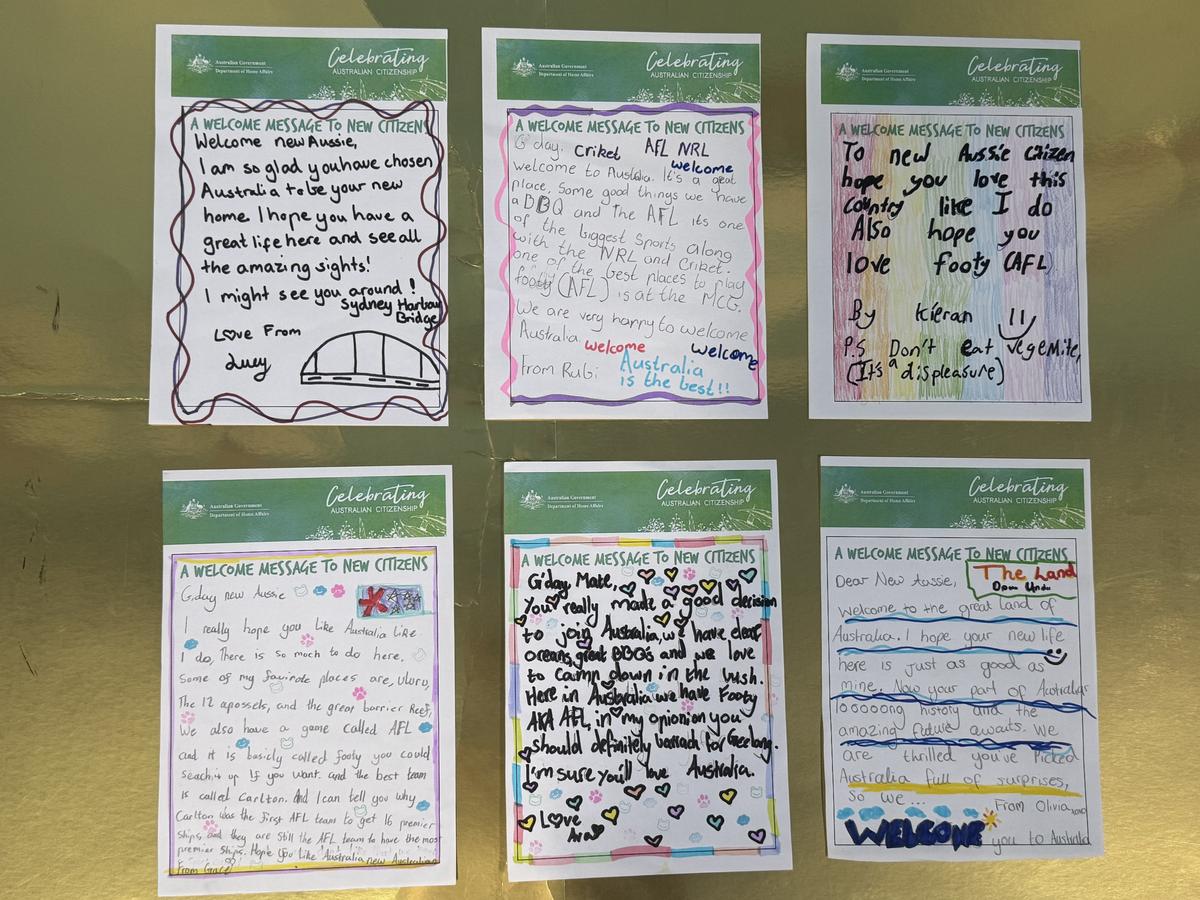 Australian Government
Department of Home Affairs
Celebrating
AUSTRALIAN CITIZENSHIP
A WELCOME MESSAGE TO NEW CITIZENS
Welcome new Aussie,
I am so glad you have chosen
Australia to be your new
home. I hope you have a
great life here and see all
the amazing sights!
I might see you around!
Sydney Harbour
Bridge
Love From
Lucy
Australian Government
Department of Home Affairs
Celebrating
AUSTRALIAN CITIZENSHIP
A WELCOME MESSAGE TO NEW CITIZENS
G'day. Criket AFL NRL
welcome
welcome to Australia. It's a great
place. Some good things we have
a BBQ and the AFL its one
of the biggest sports along
with the NRL and Criket.
one of the best places to play
footy (AFL) is at the MCG.
We are very happy to welcome
Australia. welcome welcome
From Rubi Australia
is the best!!
Australian Government
Department of Home Affairs
Celebrating
AUSTRALIAN CITIZENSHIP
A WELCOME MESSAGE TO NEW CITIZENS
To new Aussie Citizen
hope you love this
country like I do
Also hope you
love footy (AFL)
By kieran
P.S Don't eat vegemite,
(It's a displeasure)
Australian Government
Department of Home Affairs
Celebrating
AUSTRALIAN CITIZENSHIP
A WELCOME MESSAGE TO NEW CITIZENS
G,day new Aussie
I really hope you like Australia like
I do, There is so much to do here.
Some of my favirote places are, Uluru,
The 12 apossels, and the great barrier Reef,
We also have a game called AFL
and it is basicly called footy you could
seach it up if you want. and the best team
is called Carlton. And I can tell you why
Carlton was the first AFL team to get 16 premier
ships, and they are still the AFL team to have the most
premier ships. Hope you like Australia new Australian
From Grace
Australian Government
Department of Home Affairs
Celebrating
AUSTRALIAN CITIZENSHIP
A WELCOME MESSAGE TO NEW CITIZENS
G'day Mate,
You really made a good decision
to join Australia, we have clear
oceans, great BBQ's and we love
to camp down in the bush.
Here in Australia we have Footy
AKA AFL, in my opionion you
should definitely barrack for Geelong.
I'm sure you'll love Australia.
Love
Ava
Australian Government
Department of Home Affairs
Celebrating
AUSTRALIAN CITIZENSHIP
A WELCOME MESSAGE TO NEW CITIZENS
Dear New Aussie,
The Land
Down Under
Welcome to the great land of
Australia. I hope your new life
here is just as good as
mine. Now your part of Australias
looooong history and the
amazing future awaits. We
are thrilled you've picked
Australia full of surprises,
so we...
From Olivia
WELCOME you to Australia